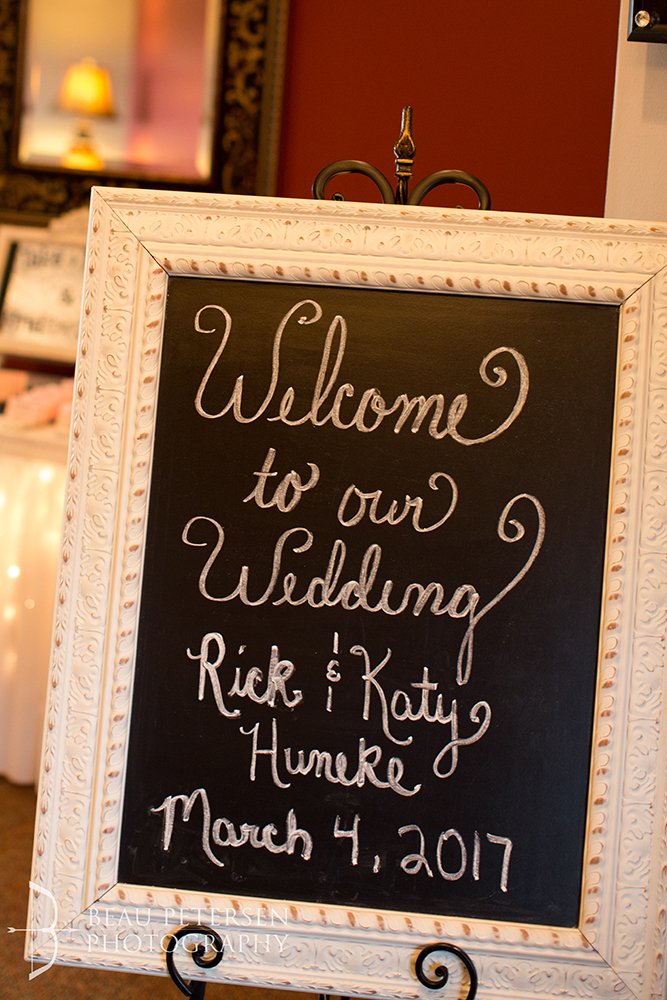 Welcome
to our
Wedding
Rick & Katy
Huneke
March 4, 2017
BEAU PETERSEN
PHOTOGRAPHY